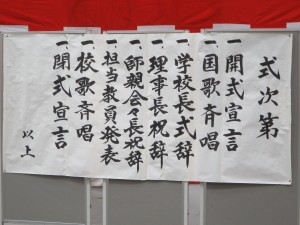 式次第
一、開式宣言
一、国歌斉唱
一、学校長式辞
一、理事長祝辞
一、師親会々長祝辞
一、担当教員発表
一、校歌斉唱
一、閉式宣言
以上